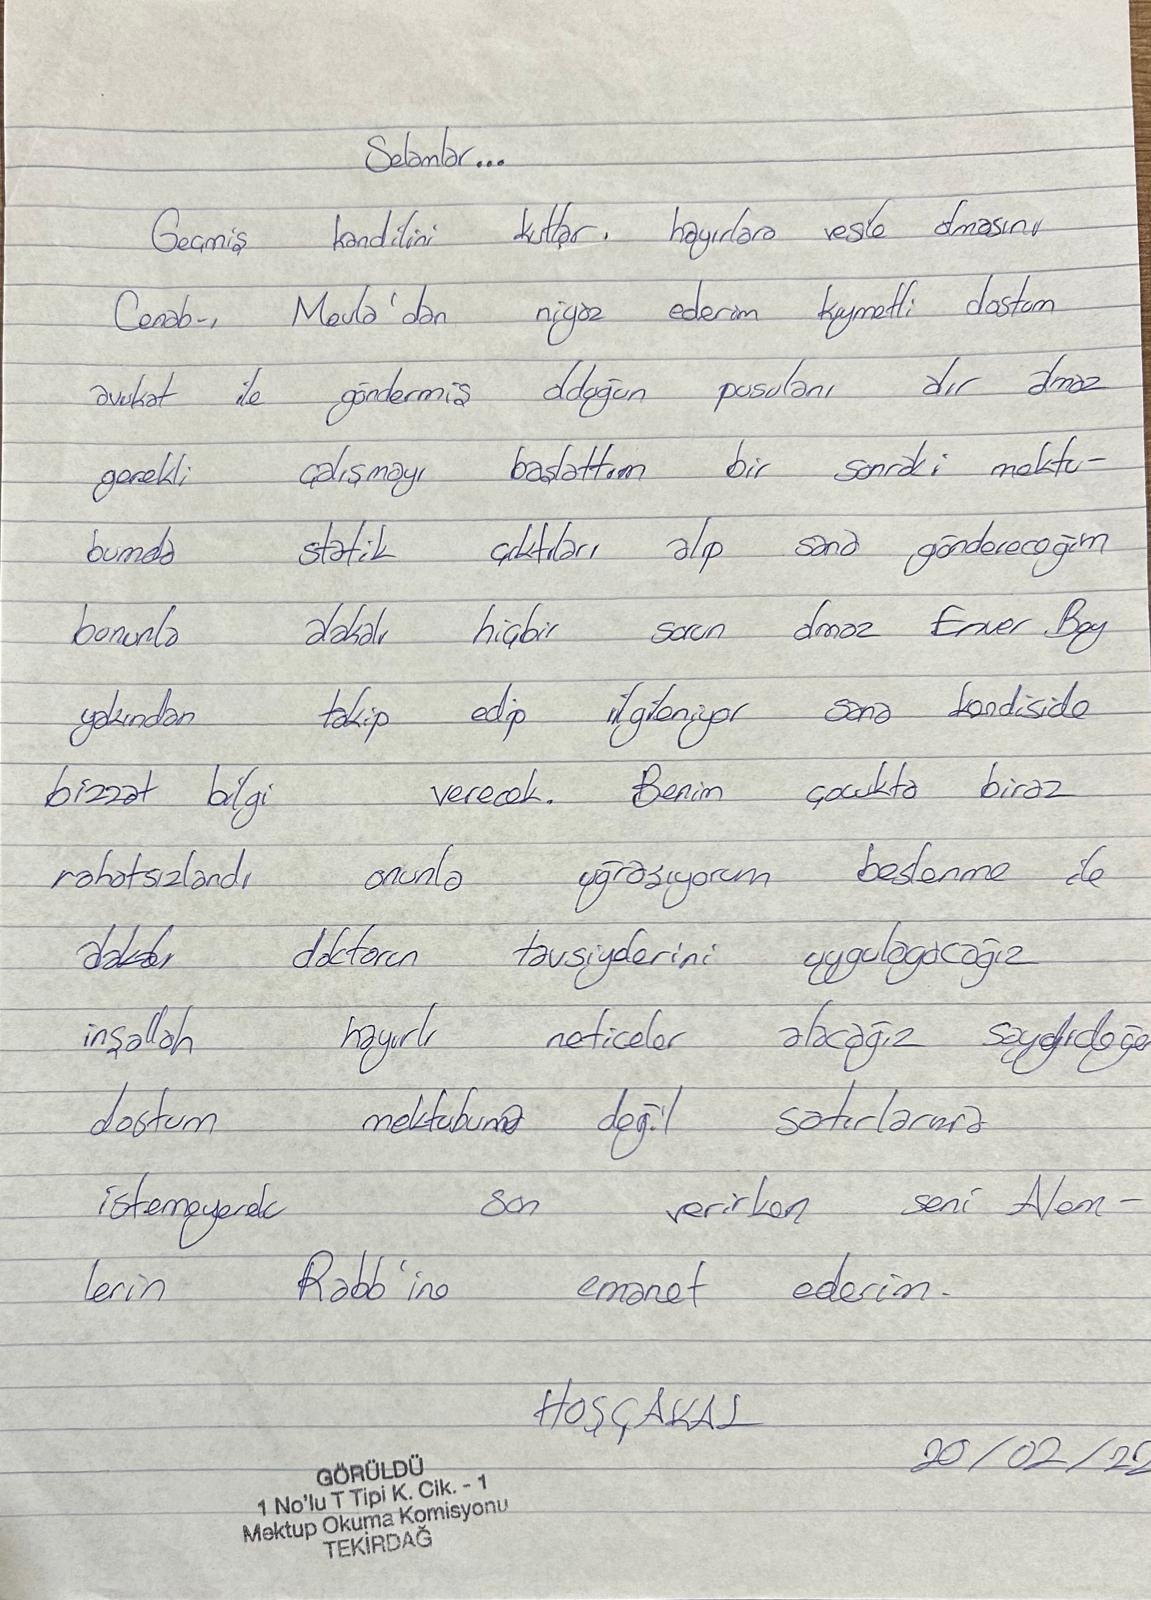 Selamlar...
Geçmiş kandilini kutlar, hayırlara vesile olmasını
Cenab-ı Mevla'dan niyaz ederim kıymetli dostum
avukat ile göndermiş olduğun pusulanı alır almaz
gerekli çalışmayı başlattım bir sonraki mektu-
bumda statik çıktıları alıp sana göndereceğim
bununla alakalı hiçbir sorun olmaz Enver Bey
yakından takip edip ilgileniyor sana kendiside
bizzat bilgi verecek. Benim çocukta biraz
rahatsızlandı onunla uğraşıyorum beslenme ile
alakalı doctorun tavsiyelerini uygulayacağız
inşallah hayırlı neticeler alacağız saygıdeğer
dostum mektubuma değil satırlarıma
istemeyerek son verirken seni Alem-
lerin Rabb'ine emanet ederim.
HOŞÇAKAL
20/02/22
GÖRÜLDÜ
1 No'lu T Tipi K. Cik. - 1
Mektup Okuma Komisyonu
TEKİRDAĞ